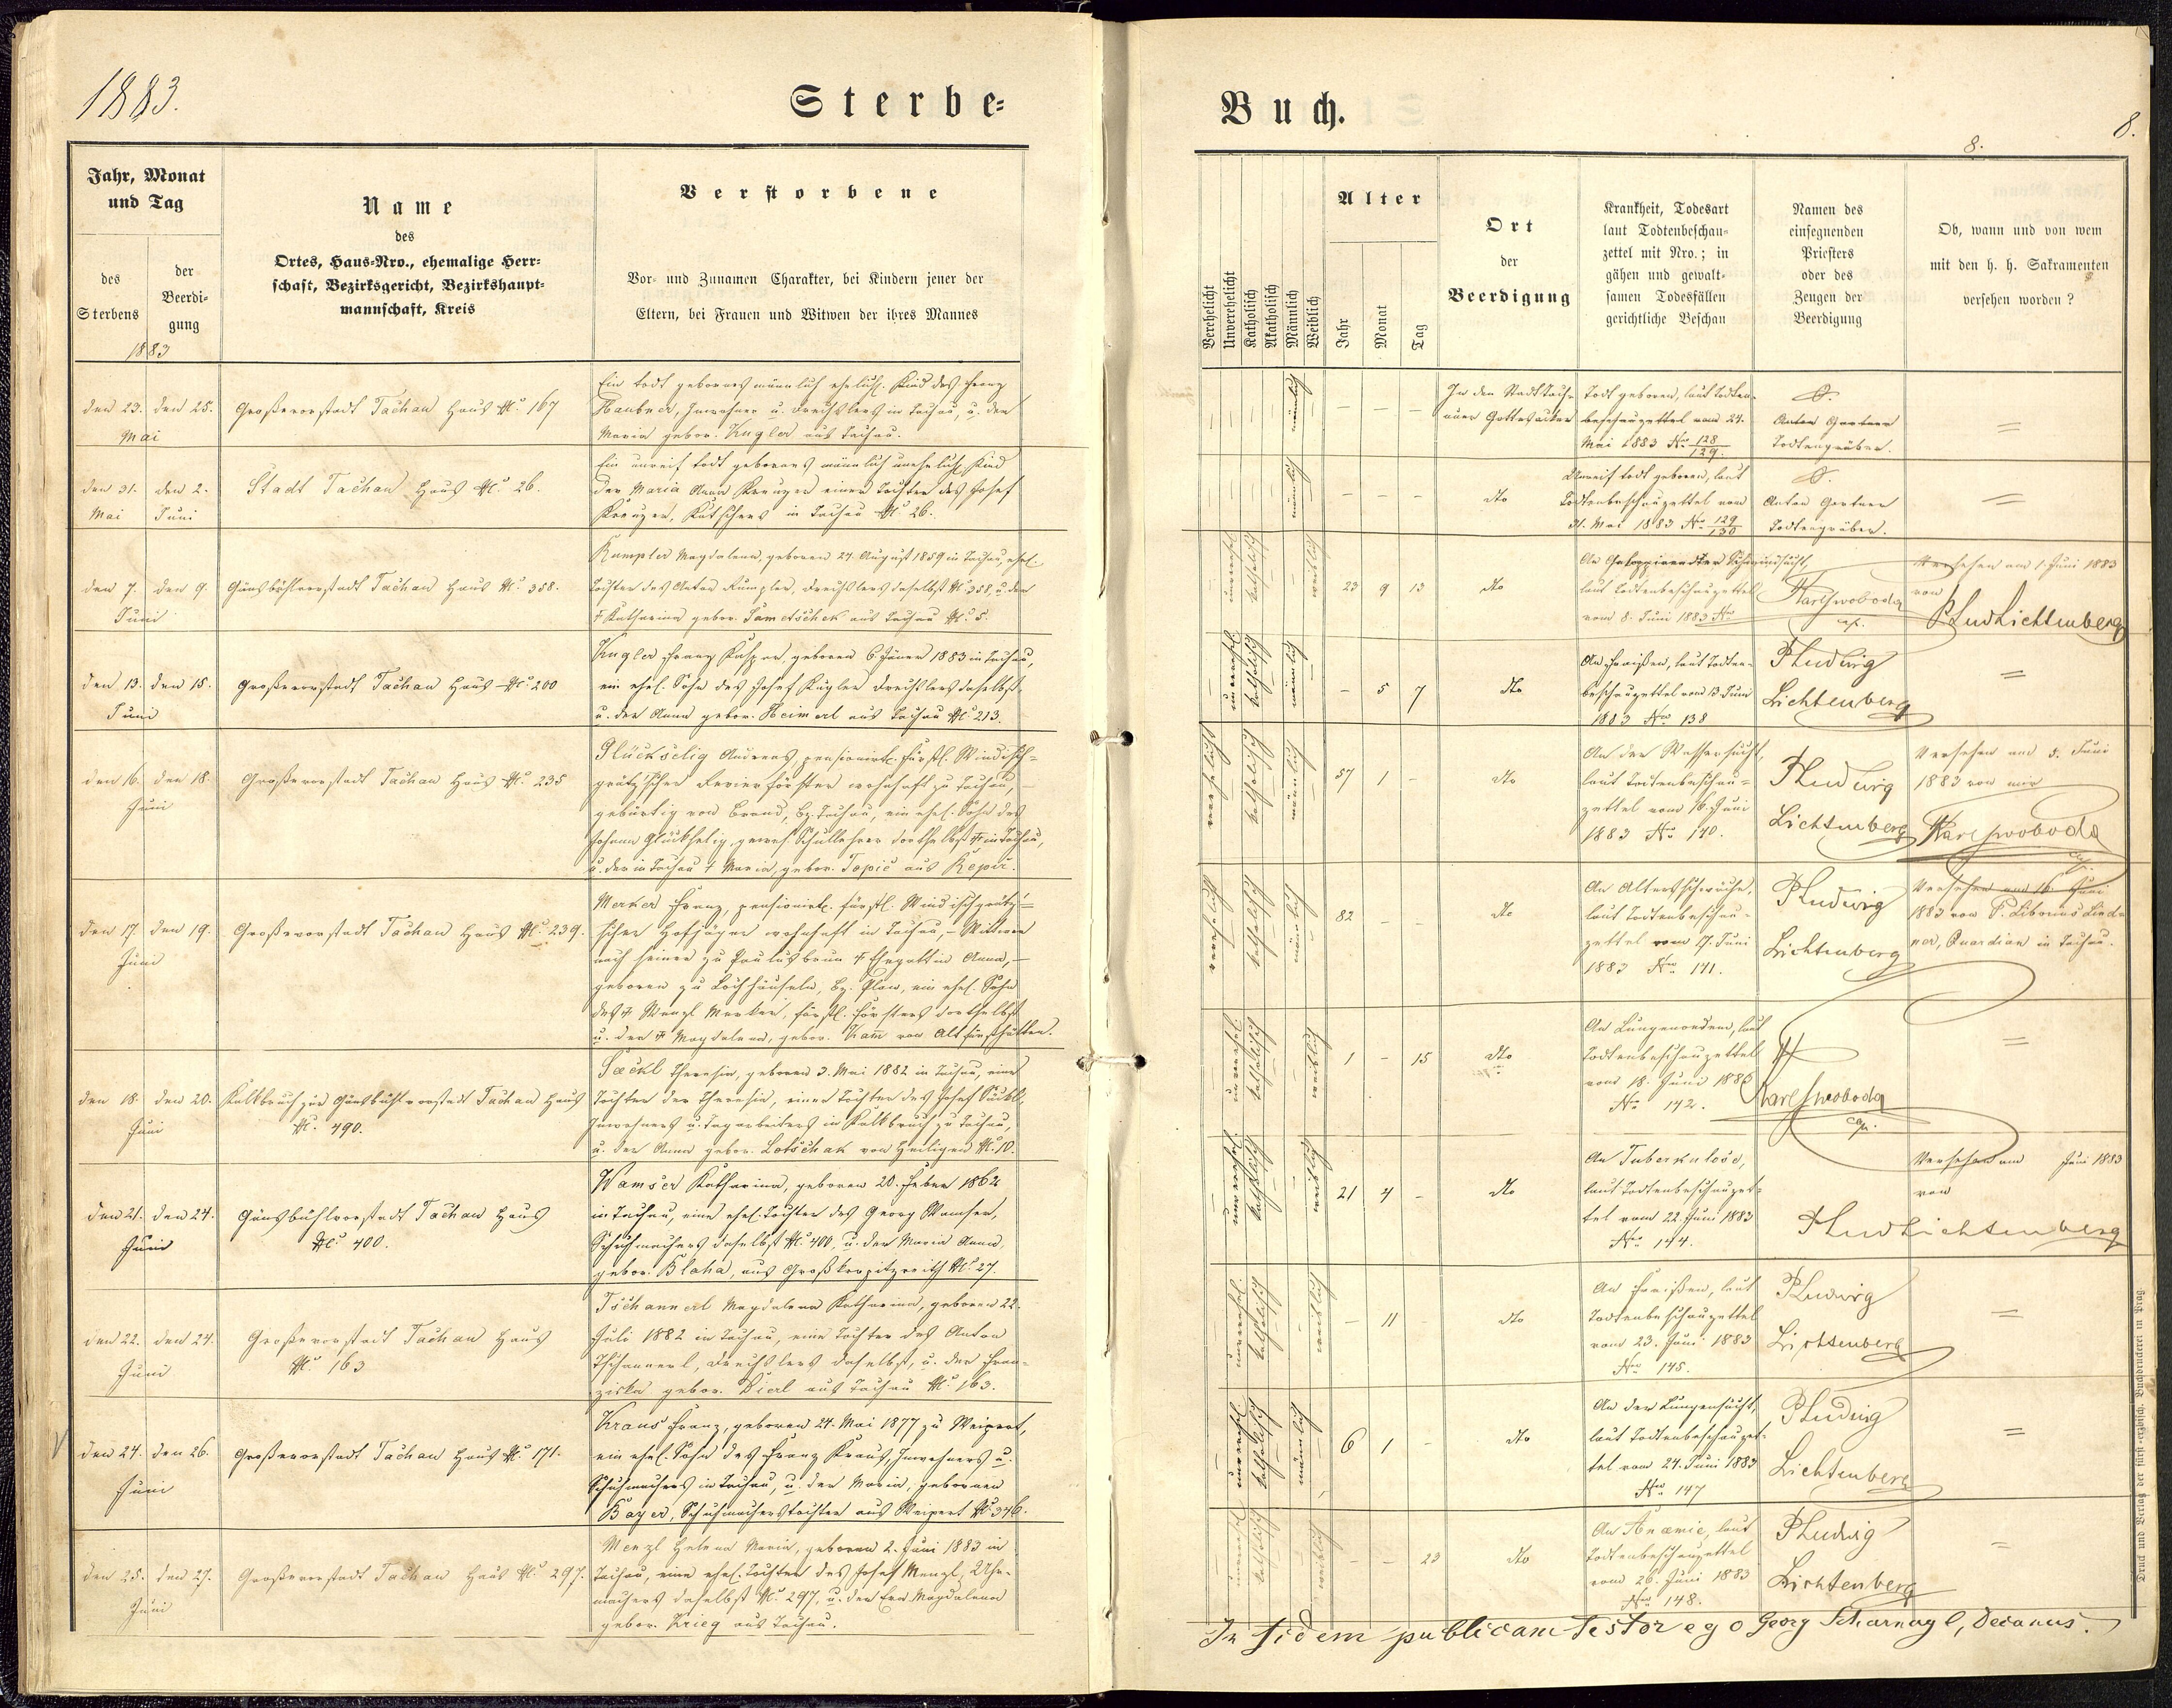 1883.
Sterbe-
Jahr, Monat
und Tag
des
Sterbens
der
Beerdi-
gung
1883
Name
des
Ortes, Haus-Nro., ehemalige Herr-
schaft, Bezirksgericht, Bezirkshaupt-
mannschaft, Kreis
Verstorbene
Vor- und Zunamen Charakter, bei Kindern jener der
Eltern, bei Frauen und Witwen der ihres Mannes
den 23. den 25.
Mai
Großvorstadt Tachau Haus N. 167
Ein todt gebornes männlich ehelich. Kind des Franz
Haubner, Inwohner u. Drechslers in Tachau, u. der
Maria gebor. Kugler aus Tachau.
den 31. den 2.
Mai Juni
Stadt Tachau Haus N. 26.
Ein unreif todt gebornes männlich unehelich Kind
der Maria Anna Kreuzer einer Tochter des Josef
Kreuzer, Kutschers in Tachau N. 26.
den 7. den 9.
Juni
Gänsbühlvorstadt Tachau Haus N. 358.
Rumpler Magdalena, geboren 24 August 1859 in Tachau, ehel.
Tochter des Anton Rumpler, Drechslers daselbst N. 358, u. der
† Katharina gebor. Sametschek aus Tachau N. 5.
den 13. den 15.
Juni
Großvorstadt Tachau Haus N. 200
Kugler Franz Kaspar, geboren 6 Jäner 1883 in Tachau,
ein ehel. Sohn des Josef Kugler Drechslers daselbst
u. der Anna gebor. Heimerl aus Tachau N. 213.
den 16. den 18.
Juni
Großvorstadt Tachau Haus N. 235
Glückselig Andreas, pensionirt. fürstl. Windisch-
grätz'scher Revierförster wohnhaft zu Tachau,
gebürtig von Brand, Bz. Tachau, ein ehel. Sohn des
Johann Glückselig, gewes. Schullehrer dortselbst † in Tachau,
u. der in Tachau † Maria, gebor. Topič aus Repir.
den 17. den 19.
Juni
Großvorstadt Tachau Haus N. 239.
Merker Franz, pensionirt. fürstl. Windischgrätz'-
scher Hofjäger wohnhaft in Tachau, – Wittwer
nach seiner zu Paulusbrun † Ehegattin Anna, –
geboren zu Lochhäuseln, Bz. Plan, ein ehel. Sohn
des † Wenzl Merker, fürstl. Försters dortselbst
u. der † Magdalena, gebor. Kam̄ von Altfürsthütten.
den 18. den 20.
Juni
Kalkbruch zur Gänsbühlvorstadt Tachau Haus
N. 490.
Säckl Theresia, geboren 3. Mai 1882 in Tachau, eine
Tochter der Theresia, einer Tochter des Josef Säckl,
Inwohners u. Tagarbeiters in Kalkbruch zu Tachau,
u. der Anna gebor. Lotschak von Heiligen N. 10.
den 21. den 24.
Juni
Gänsbühlvorstadt Tachau Haus
N. 400.
Wamser Katharina, geboren 20. Feber 1862
in Tachau, eine ehel. Tochter des Georg Wamser,
Schuhmachers daselbst N. 400, u. der Maria Anna,
gebor. Blaha, aus Großkorpitzreith N. 27.
den 22. den 24.
Juni
Großvorstadt Tachau Haus
N. 163
Tschannerl Magdalena Katharina, geboren 22.
Juli 1882 in Tachau, eine Tochter des Anton
Tschannerl, Drechslers daselbst, u. der Fran-
ziska gebor. Dierl aus Tachau N. 163.
den 24. den 26.
Juni
Großvorstadt Tachau Haus N. 171.
Kraus Franz, geboren 24. Mai 1877 zu Weipert,
ein ehel. Sohn des Franz Kraus, Inwohners u.
Schuhmachers in Tachau, u. der Maria, gebornen
Bayer, Schuhmacherstochter aus Weipert N. 346.
den 25. den 27.
Juni
Großvorstadt Tachau Haus N. 297.
Menzl Helena Maria, geboren 2. Juni 1883 in
Tachau, eine ehel. Tochter des Josef Menzl, Uhr-
machers daselbst N. 297, u. der Eva Magdalena
gebor. Krieg aus Tachau.
Buch.
8.
8.
Verehelicht
Unverehelicht
Katholisch
Akatholisch
Männlich
Weiblich
Alter
Jahr
Monat
Tag
Ort
der
Beerdigung
Krankheit, Todesart
laut Todtenbeschau-
zettel mit Nro.; in
gähen und gewalt-
samen Todesfällen
gerichtliche Beschau
Namen des
einsegnenden
Priesters
oder des
Zeugen der
Beerdigung
Ob, wann und von wem
mit den h. h. Sakramenten
versehen worden?
männlich
In den Stadt Tach-
auer Gottesacker
Todt geboren, laut Todten-
beschauzettel vom 24.
Mai 1883 No 128/129.
Anton Gartner
Todtengräber.
männlich
dto
Unreif todt geboren, laut
Todtenbeschauzettel vom
31. Mai 1883 No 129/130
Anton Gartner
Todtengräber.
unverehel. katholisch weiblich
23 9 13
dto
An Galoppirender Schwindsucht,
laut Todtenbeschauzettel
vom 8. Juni 1883 No
Karl Swoboda
cap.
Versehen am 1. Juni 1883
von
P Lud Lichtenberg
unverehel. katholisch männlich
5 7
dto
An Fraißen, laut Todten-
beschauzettel vom 13. Juni
1883 No 138
P Ludwig
Lichtenberg
verehelicht katholisch männlich
57 1
dto
An der Wassersucht,
laut Todtenbeschau-
zettel vom 16. Juni
1883 No 140.
P Ludwig
Lichtenberg
Versehen am 5. Juni
1883 von mir
Karl Swoboda
cap.
verehelicht katholisch männlich
82
dto
An Altersschwäche,
laut Todtenbeschau-
zettel vom 17. Juni
1883 No 141.
P Ludwig
Lichtenberg
Versehen am 16. Juni
1883 von P. Liborius Lind-
ner, Quardian in Tachau.
unverehel. katholisch weiblich
1 – 15
dto
An Lungenoedem, laut
Todtenbeschauzettel
vom 18. Juni 1883
No 142.
Karl Swoboda
cap.
unverehel. katholisch weiblich
21 4
dto
An Tuberkulose,
laut Todtenbeschauzet-
tel vom 22. Juni 1883
No 144.
Versehen am Juni 1883
von
P Lud Lichtenberg
unverehel. katholisch weiblich
11
dto
An Fraißen, laut
Todtenbeschauzettel
vom 23. Juni 1883
No 145.
P Ludwig
Lichtenberg
unverehel. katholisch männlich
6 1
dto
An der Lungensucht,
laut Todtenbeschauzet-
tel vom 24. Juni 1883
No 147
P Ludwig
Lichtenberg
unverehel. katholisch weiblich
23
dto
An Anæmie, laut
Todtenbeschauzettel
vom 26. Juni 1883
No 148.
P Ludwig
Lichtenberg
In fidem publicam testor ego Georg Scharnagl, Decanus.
Druck und Verlag der fürst-erzbisch. Buchdruckerei in Prag.